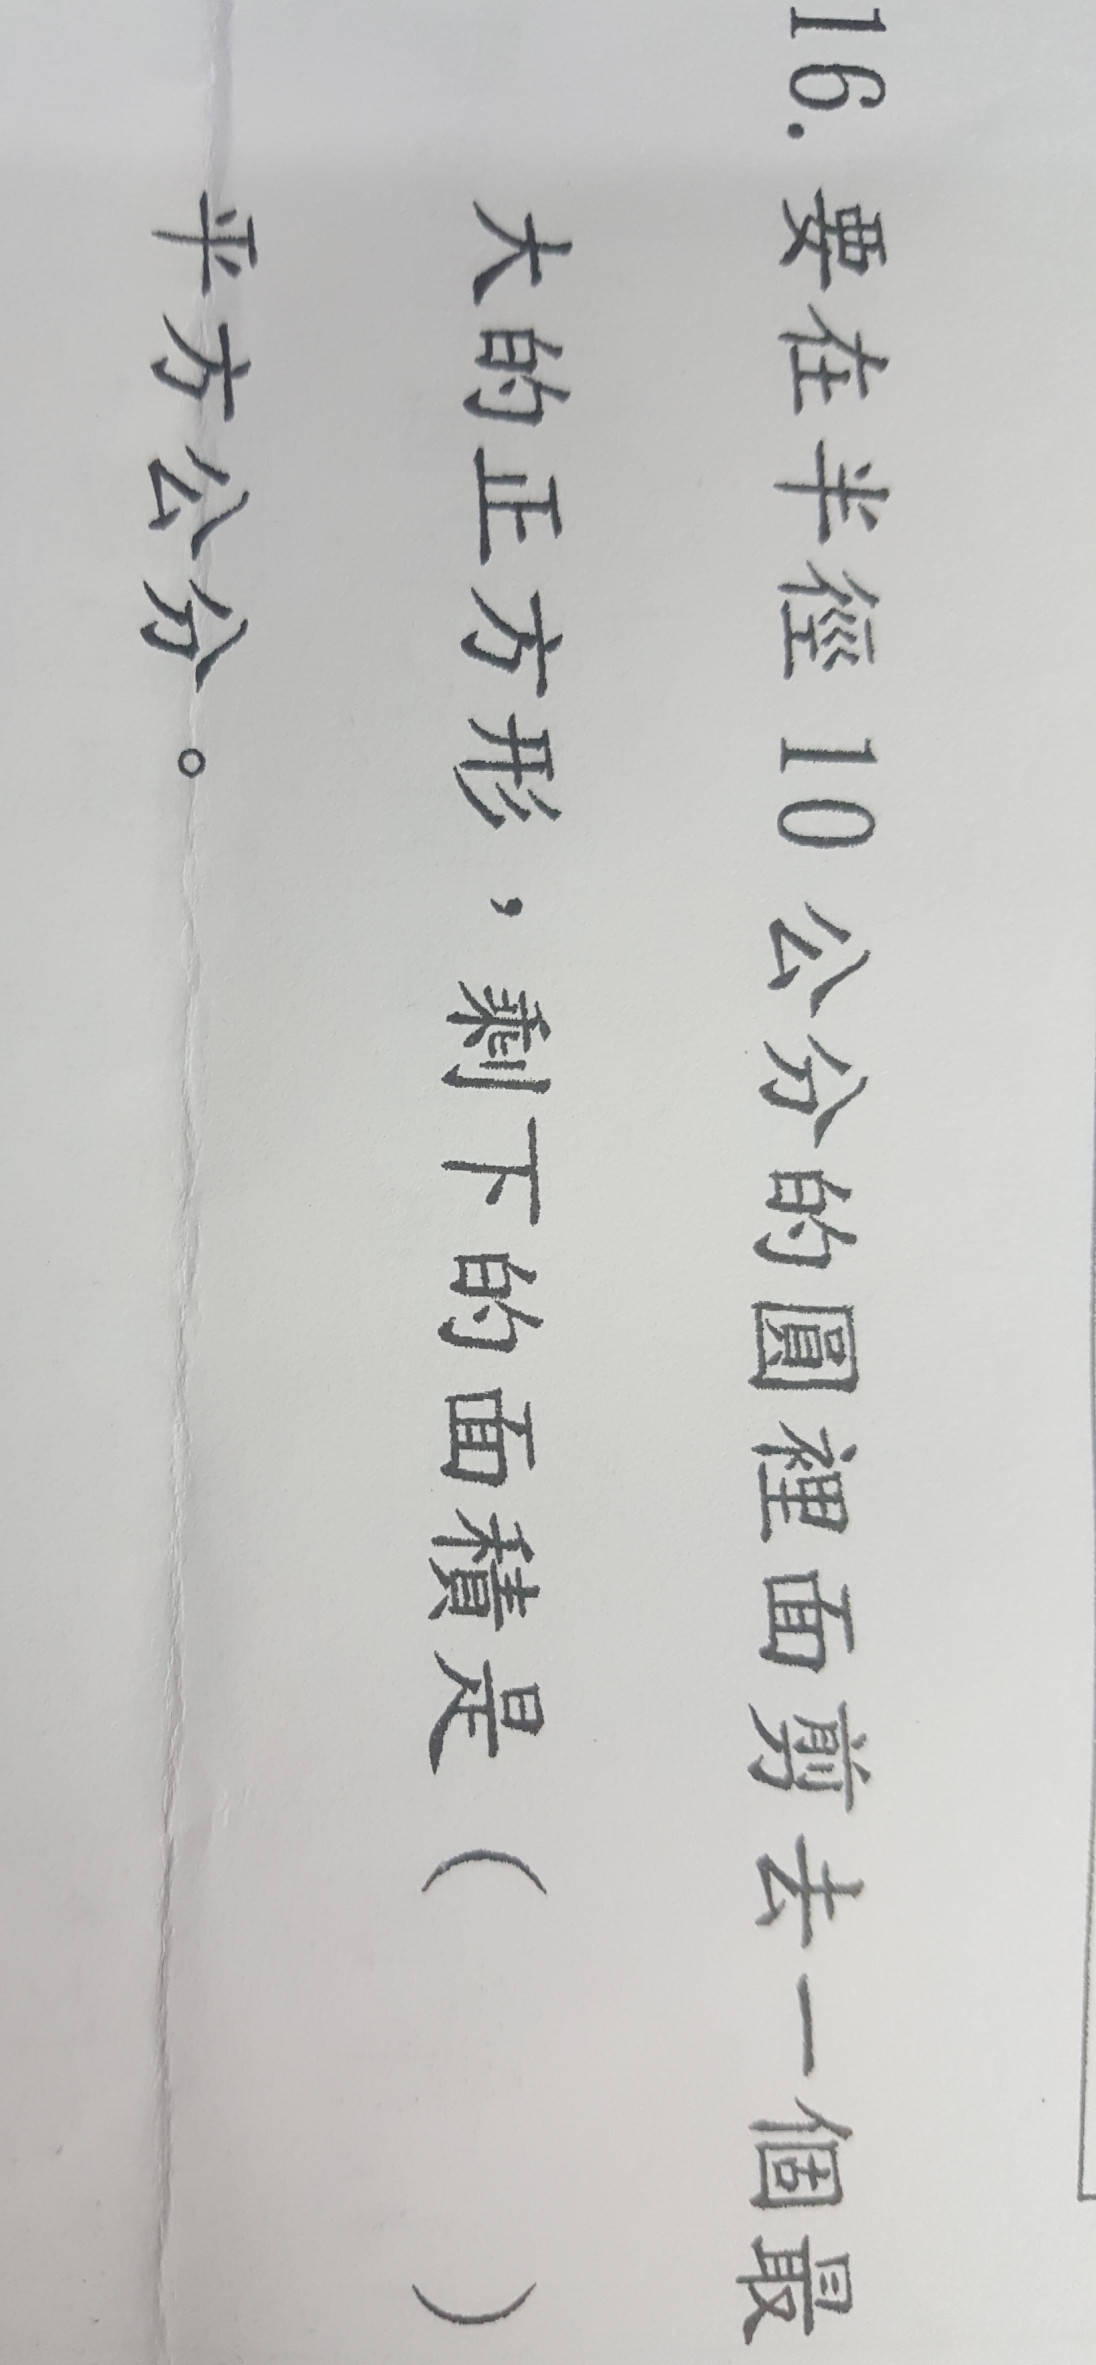 16. 要在半徑 10 公分的圓裡面剪去一個最
大的正方形，剩下的面積是（　　　）
平方公分。